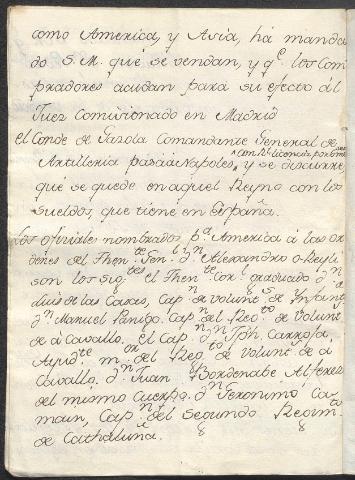 como America, y Asia, há manda
do S. M. que se vendan, y q.e los Com
pradores acudan para su efecto al
Juez Comisionado en Madrid
el Conde de Gazola Comandante General de
Artilleria pasa a Napoles, con R.l licencia por y se discurre
que se quede en aquel Reyno con los
sueldos, que tiene en España.
Los oficiales nombrados p.a America á las or
denes del Then.te Gen.l d.n Alexandro o-Reyli
son los sig.tes el Then.te Cor.l graduado d.n
Luis de las Casas, Cap.n de Volunt.s de Infant.
d.n Manuel Panigo. Cap.n del Reg.to de Volunt
de á Cavallo. el Cap.n d.n Jph.
Ayud.te m.or del Reg.to de Volunt de á
Cavallo. d.n Juan Bordenabe Alferez
del mismo Cuerpo. d.n Geronimo
Cap.n del segundo Regim.to
de Cathaluña.